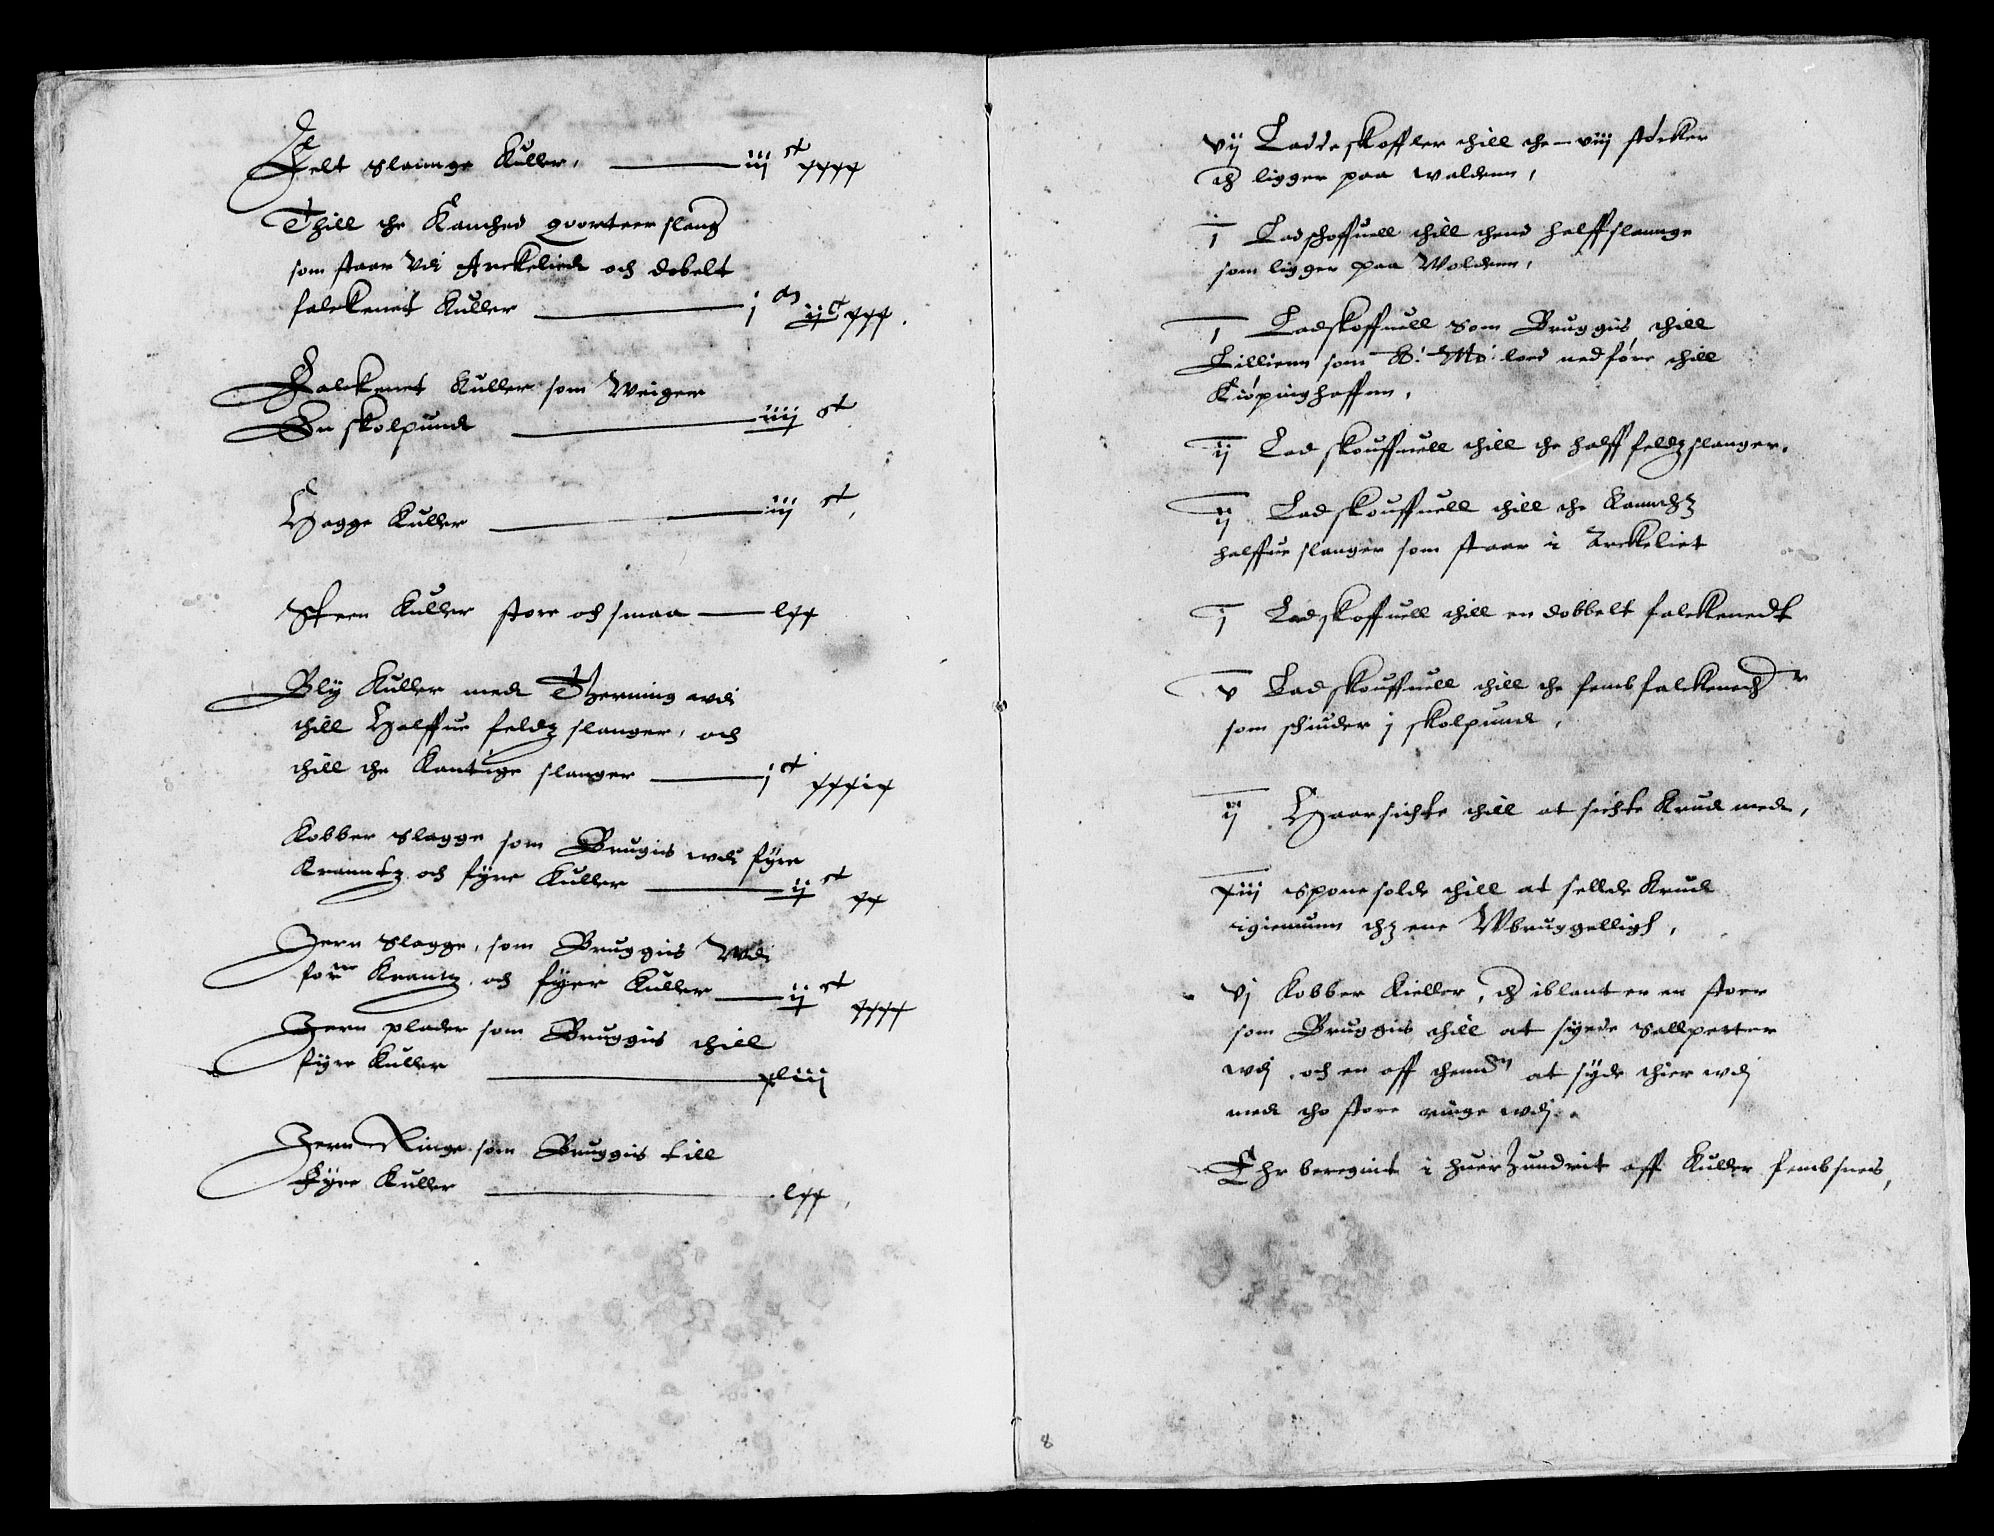 Felt slannge Kuller, iii ct xxxx
Thill the Kanthed qvorteer slang
som staar vdi Arckeliedt och dobelt
falckenet Kuller j m iic xxx.
Falckenet Kuller som Weiger
En skolpundt iiij ct
Hagge Kuller iiij ct,
Steen Kuller store och smaa lxx
Blÿ Kuller medt Therning wdi
thill Halffue feldtz slanger, och
thill the Kantuge slanger j ct xxxix
Kobber slagge som Brugis wdi fÿre
Kranntz och fÿre Kuller ij ct xx
Jern slagge, som Bruggis Wdi
Krantz, och fÿer Kuller ij ct xxxx
Jern plader som Bruggis thill
fÿre Kuller xliij
Jern Ringe som Bruggis till
Fÿre Kuller lxx,
vij Laddeskoffler thill the viij støcker
th ligger paa walden,
i Ladschoffuell thill thend halff slannge
som ligger paa Wolden,
i Ladskoffuell som Bruggis thill
Lillien som K: Mtt: loed nedføre thill
Kiøpinghaffen,
ij Lad skouffuell thill the halff feldtz slanger.
ij Lad skouffuell thill the Kannthz
halffue slanger som staar i Arckeliet
j Ladskoffuell thill en dobbelt falckenedt
v Lad skouffuell thill the femb falckeneth r
som schiuder j skolpundt,
ij Haarsichte thill at sichte Krudt medt,
xiij spone solde thill at sellde Krudt
igiennum thz ene Wbruggelligh,
vj Kobber Kieller, th iblant er en stoer
som Bruggis thill at sÿede sallpetter
wdj, och en aff themd at sÿde thier wdj
medt tho store ringe wdj.
Ehr beregnit i huer hundrit aff Kuller femb snes,
8